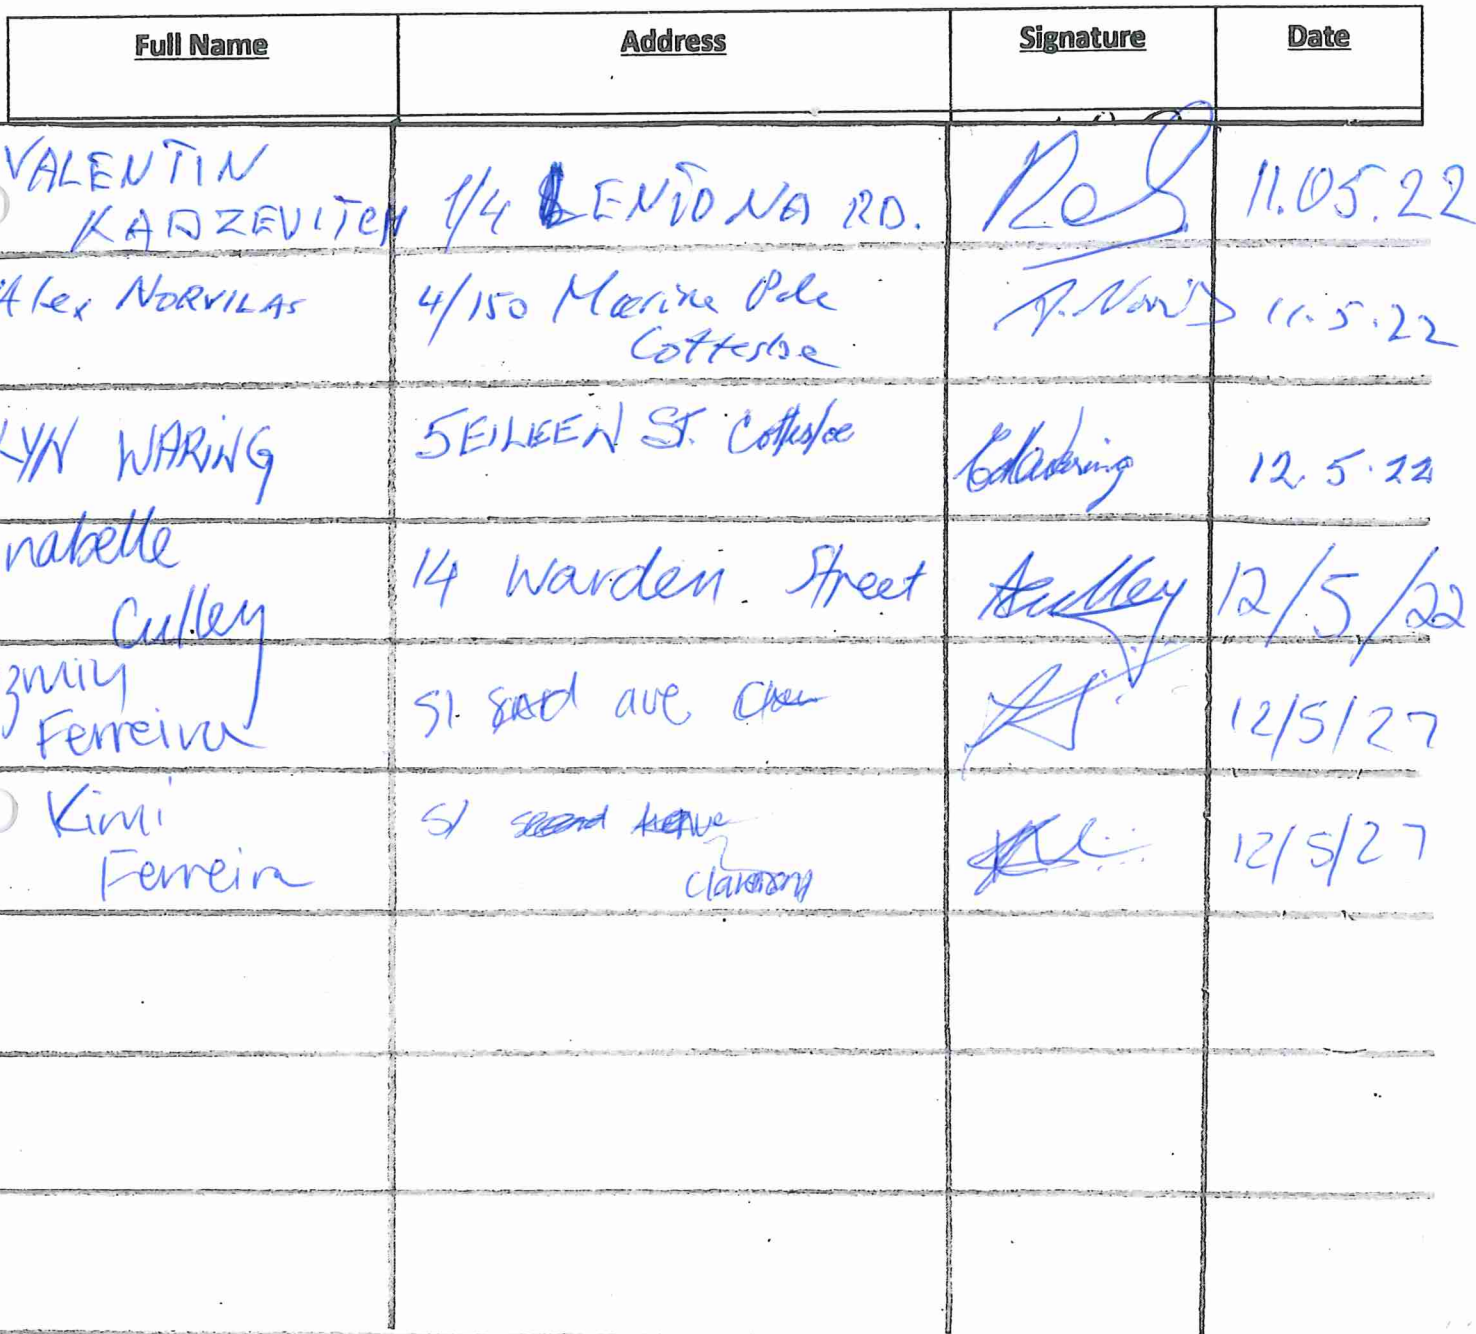 Full Name Address Signature Date
VALENTIN
KADZEVITCH 1/4 RD. 11.05.22
Alex NORVILAS 4/150 Marine Pde 11.5.22
Cottesloe
LYN WARING 5 EILEEN ST. Cottesloe 12.5.22
nabelle
Culley 14 Warden Street ACulley 12/5/22
Emily
Ferreira 51 ave 12/5/27
Kimi
Ferreira 51 second Avenue 12/5/27
Claremont